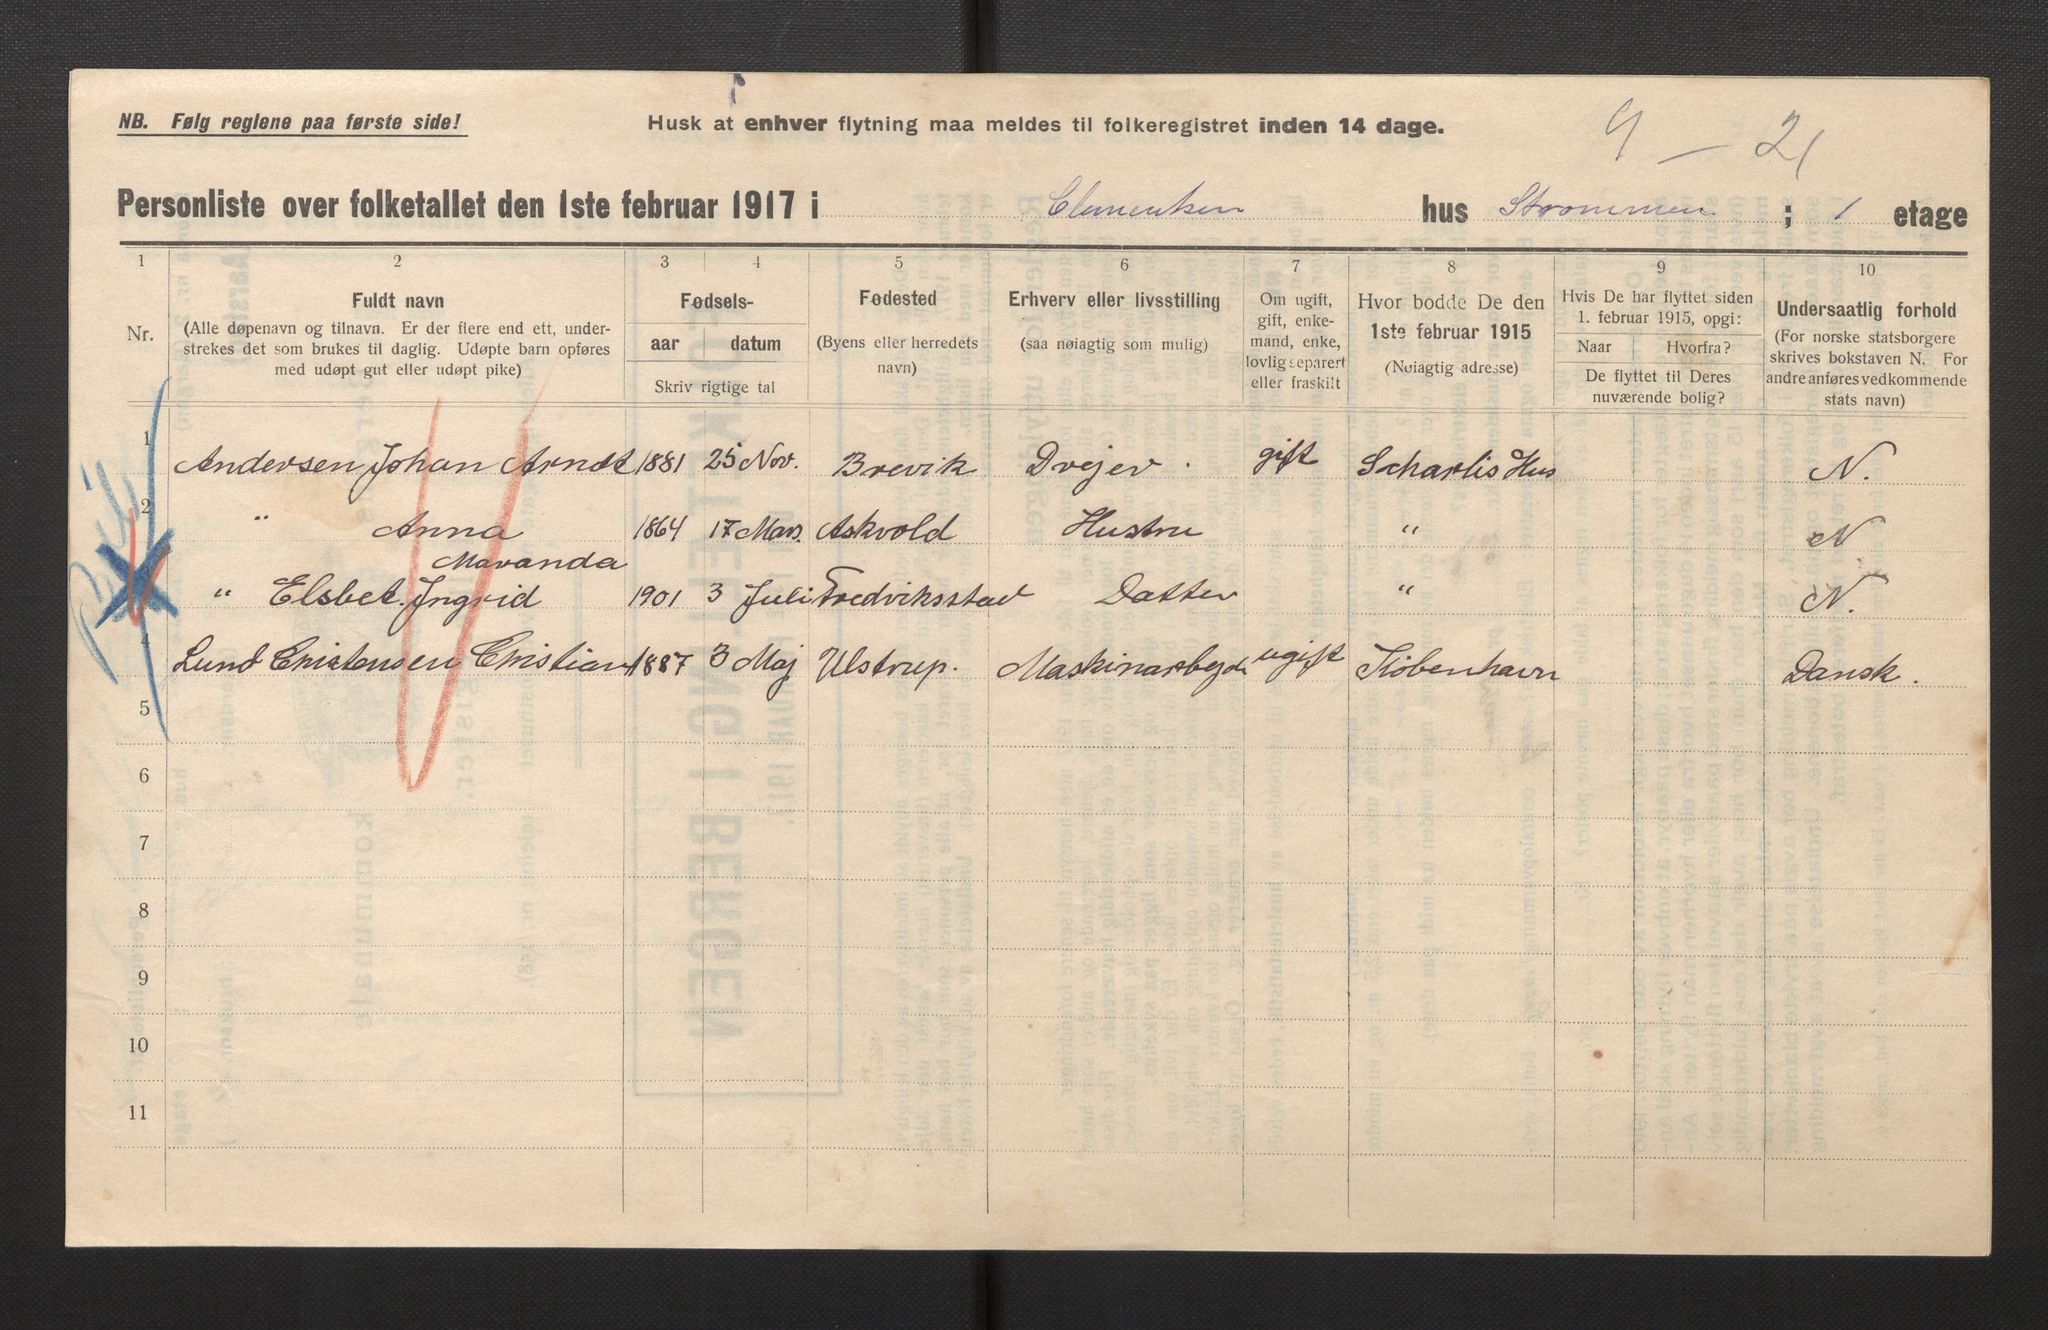 NB. Følg reglene paa første side!
Husk at enhver flytning maa meldes til folkeregistret inden 14 dage.
9 — 21
Personliste over folketallet den 1ste februar 1917 i Clementsen hus Strømmen ; 1 etage
1 2 3 4 5 6 7 8 9 10
Nr.
Fuldt navn
(Alle døpenavn og tilnavn. Er der flere end ett, under-
strekes det som brukes til daglig. Udøpte barn opføres
med udøpt gut eller udøpt pike)
Fødsels-
aar datum
Skriv rigtige tal
Fødested
(Byens eller herredets
navn)
Erhverv eller livsstilling
(saa nøiagtig som mulig)
Om ugift,
gift, enke-
mand, enke,
lovlig separert
eller fraskilt
Hvor bodde De den
1ste februar 1915
(Nøiagtig adresse)
Hvis De har flyttet siden
1. februar 1915, opgi:
Naar Hvorfra?
De flyttet til Deres
nuværende bolig?
Undersaatlig forhold
(For norske statsborgere
skrives bokstaven N. For
andre anføres vedkommende
stats navn)
1 Andersen Johan Arndt 1881 25 Nov. Brevik Drejer. gift Scharlis Hus N.
2 " Anna 1864 17 Mars. Askvold Hustru " N.
Maranda
" Elsbet. Ingrid 1901 3 Juli Fredriksstad Datter " N.
4 Lund Christensen Christian 1887 3 Maj Ulstrup. Maskinarbejder ugift København Dansk.
5
6
7
8
9
10
11